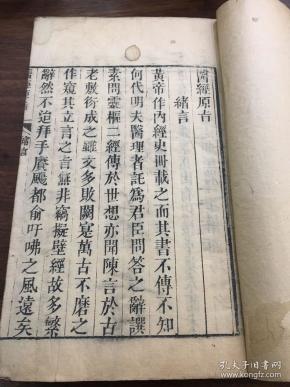 醫經原旨
緒言
黃帝作內經史冊載之而其書不傳不知
何代明夫醫理者託為君臣問答之辭譔
素問靈樞二經傳於世想亦聞陳言於古
老敷衍成之雖文多敗闕寔萬古不磨之
作窺其立言之旨無非竊擬壁經故多繁
辭然不迨拜手賡颺都俞吁咈之風遠矣
緒言
孔夫子旧书网